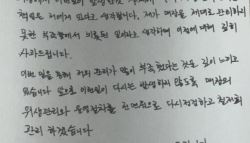 책임은 저에게 있다고 생각합니다. 제가 매장을 제대로 관리하지
못한 부족함에서 비롯된 일이라고 생각하며 이점에 대해 깊이
사과드립니다.
이번 일을 통해 저의 관리가 많이 부족했다는 것을 깊이 느끼고
있습니다 앞으로 이런일이 다시는 발생하지 않도록 매장의
위생관리와 운영절차를 전면적으로 다시점검하고 철저히
관리 하겠습니다